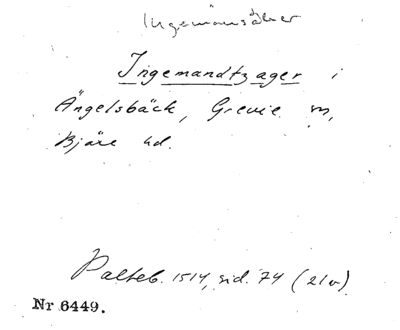 Ingemansåker
Ingemandtzager i
Ängelsbäck, Grevie sn,
Bjäre hd.
Palteb. 1514, sid. 74 (21v)
Nr 6449.